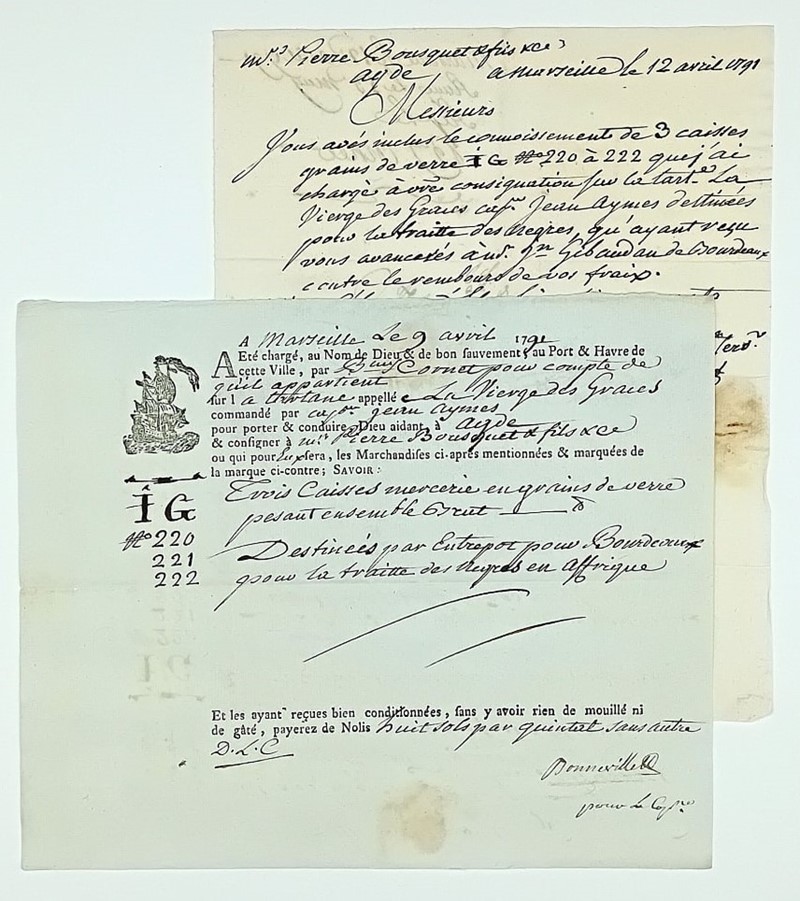 Mrs. Pierre Bousquet & fils & ce
agde a marseille le 12 avril 1791
Messieurs
Vous avés inclus le connoissement de 3 caisses
grains de verre IG No 220 à 222 que j'ai
chargé à vre consignation sur la tartne La
Vierge des Graces capne Jean Aymes destinées
pour la traitte des negres, qu'ayant reçu
vous avancerés à mr. Jn Gibaudan de Bourdeaux
contre le rembours de vos fraix.
A Marseille Le 9 avril 1791
A Eté chargé, au Nom de Dieu & de bon sauvement, au Port & Havre de
cette Ville, par Cornet pour compte de
qu'il appartient
sur la tartane appellé La Vierge des Graces
commandé par capne jean aymes
pour porter & conduire, Dieu aidant, à agde
& consigner à mrs Pierre Bousquet & fils & ce
ou qui pour Eux sera, les Marchandises ci-après mentionnées & marquées de
la marque ci-contre; SAVOIR:
IG
No 220
221
222
Trois Caisses mercerie en grains de verre
pesant ensemble Brut
Destinées par Entrepot pour Bourdeaux
pour la traitte des negres en affrique
Et les ayant reçues bien conditionnées, sans y avoir rien de mouillé ni
de gâté, payerez de Nolis huit sols par quintal sans autre
D. L. C
Bonneville
pour Le Capne